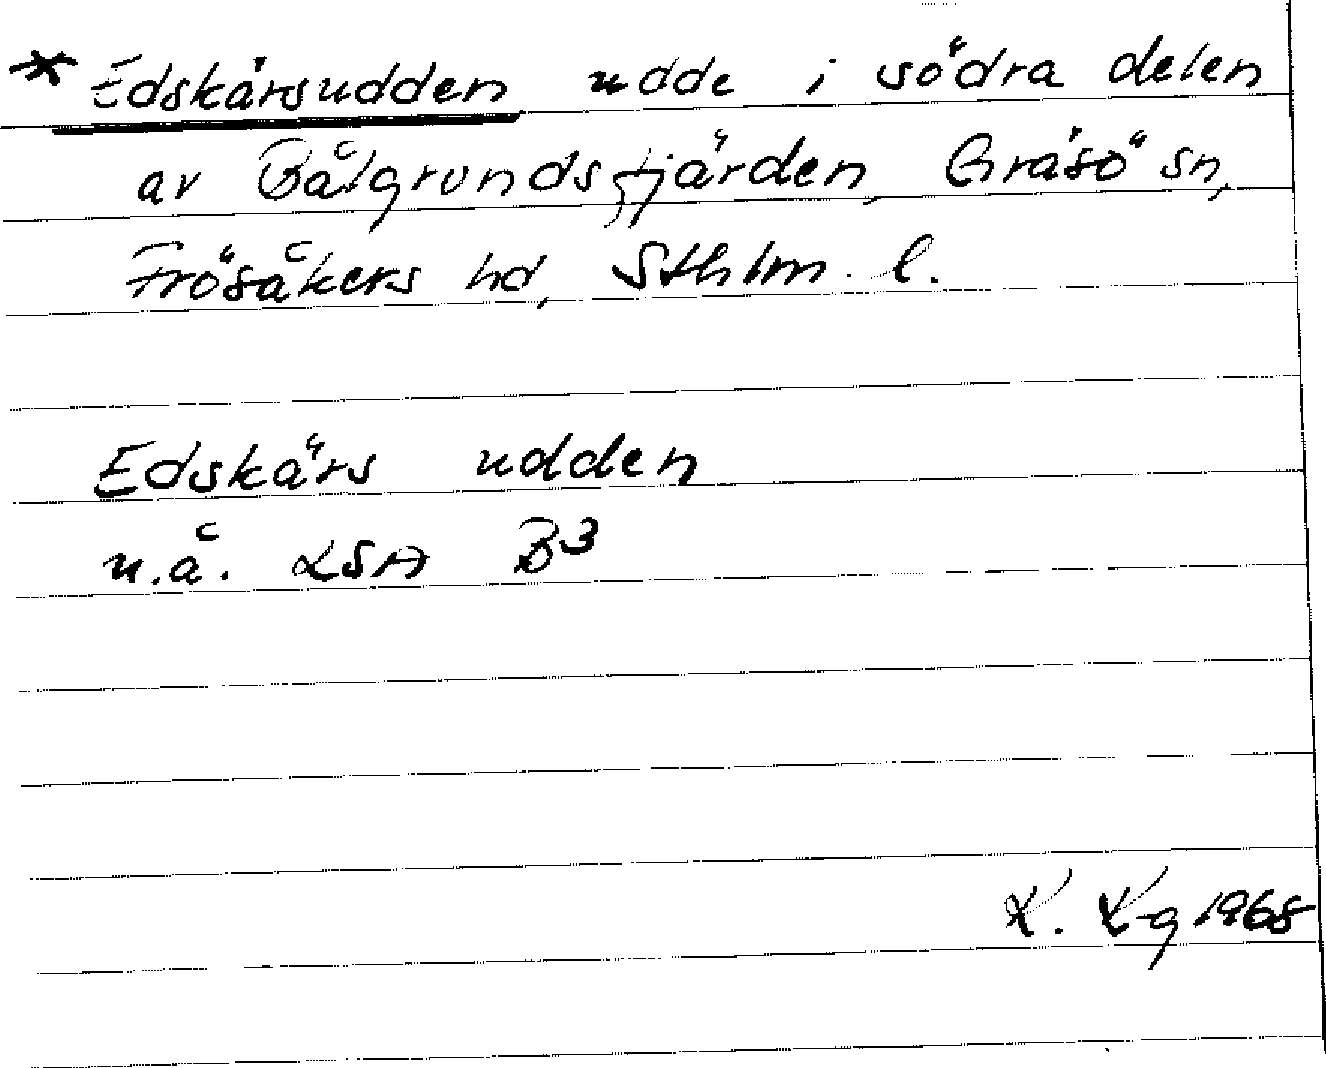 * Edskärsudden udde i södra delen
av Bålgrundsfjärden, Gräsö sn,
Frösåkers hd, Sthlm. l.
Edskärs udden
u.å. LSA B3
K. Kg 1968